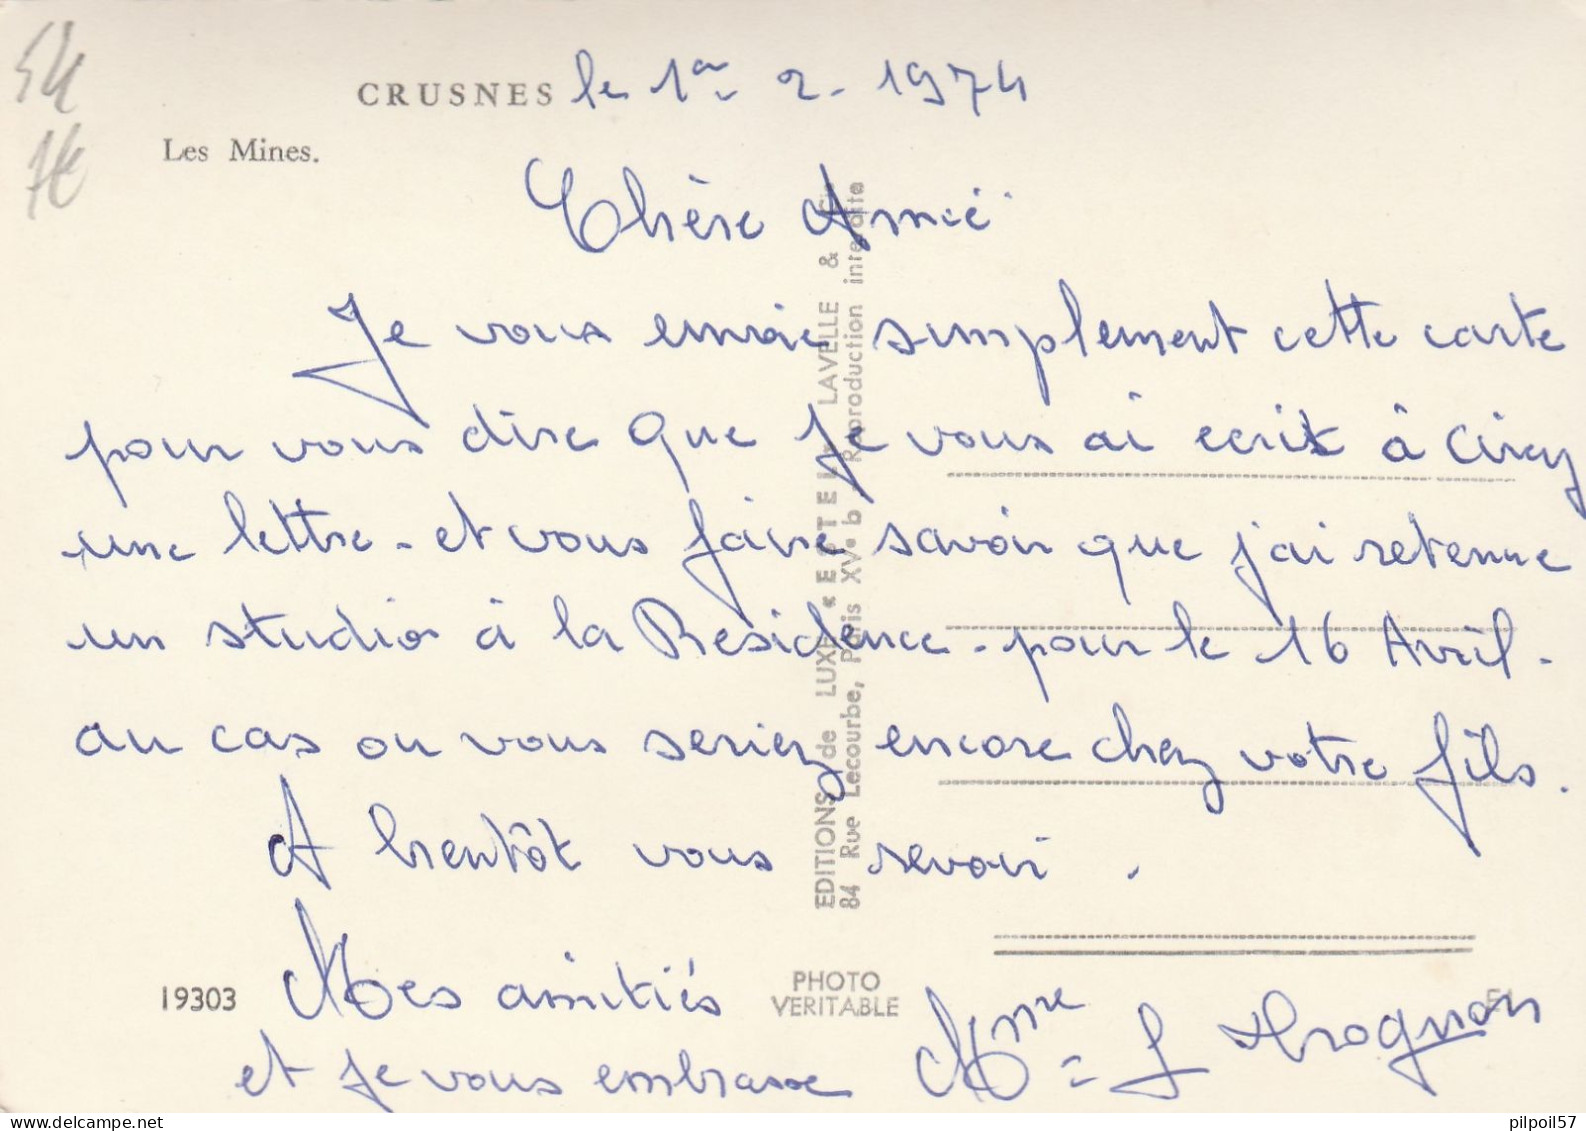 54
1€
CRUSNES le 1er - 2 - 1974
Les Mines.
Chère Amie
Je vous envoie simplement cette carte
pour vous dire que je vous ai ecrit à Cirey
une lettre - et vous faire savoir que j'ai retenue
un studio à la Residence - pour le 16 Avril -
au cas ou vous seriez encore chez votre fils.
A bientôt vous revoir.
Mes amitiés
et je vous embrasse
Mme = L
EDITIONS de LUXE « ESTEL » LAVELLE & Cie
84 Rue Lecourbe, Paris XV• b - Reproduction interdite
19303
PHOTO
VERITABLE
pilpoil57